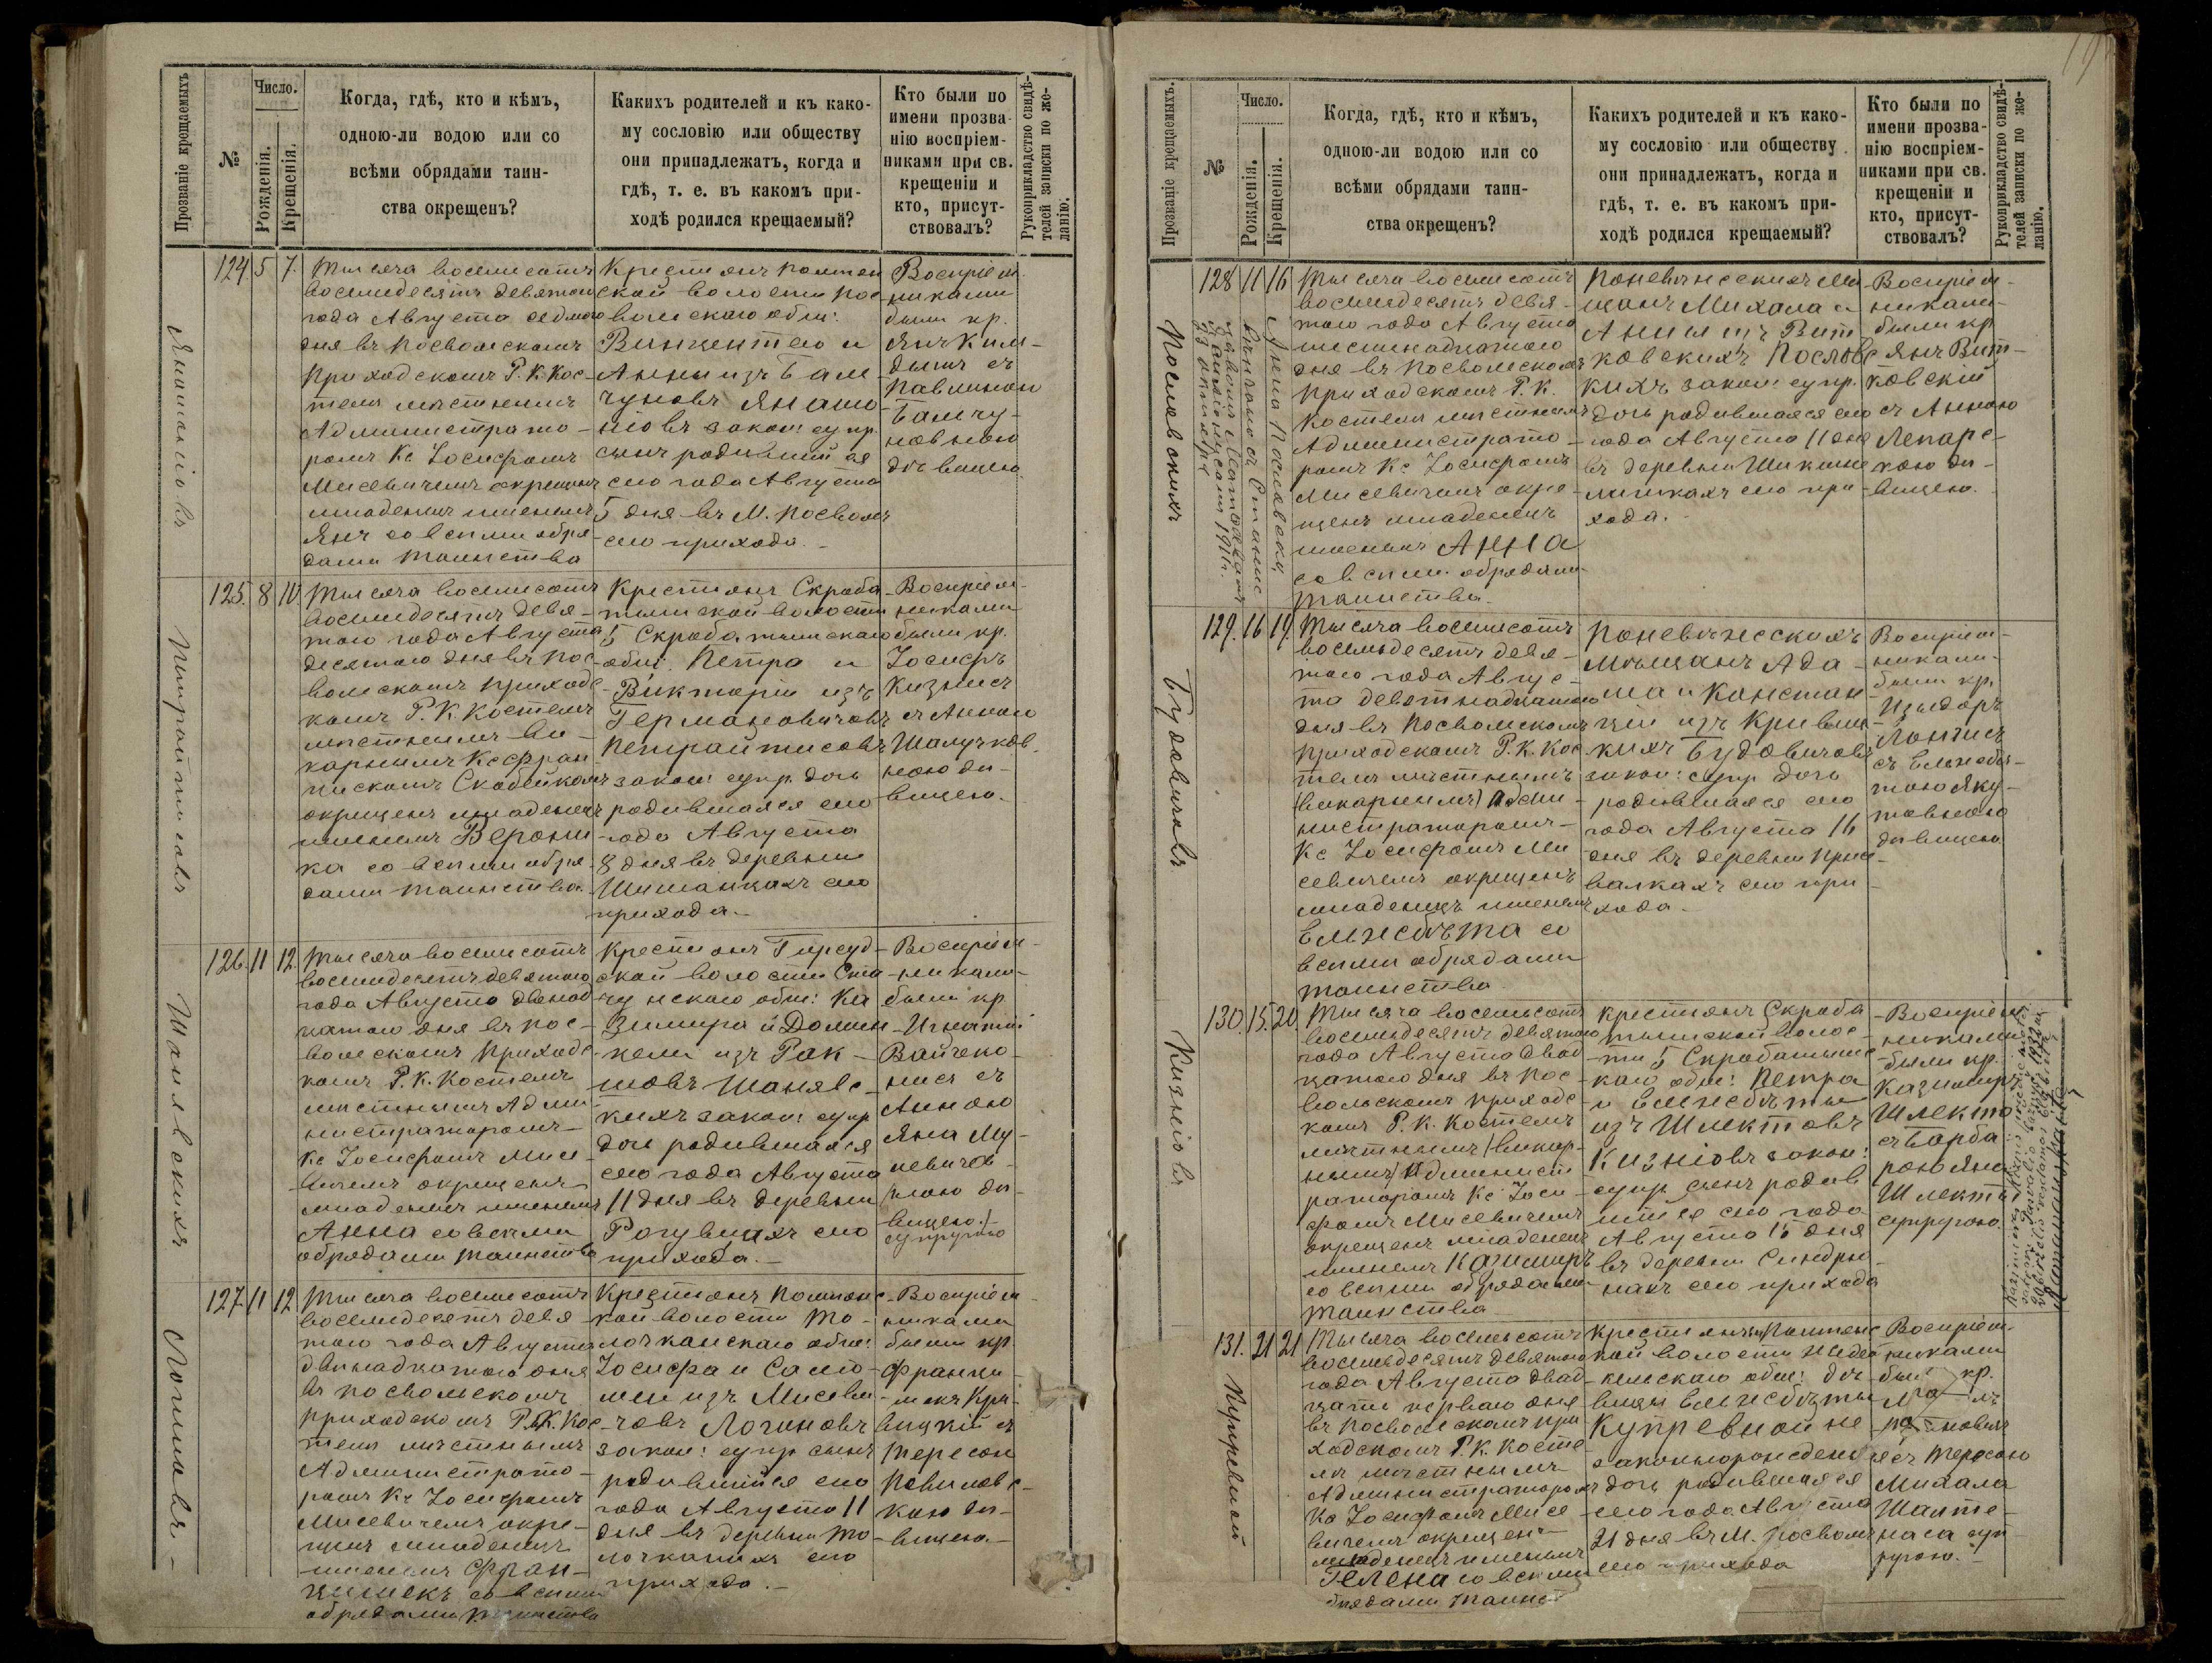 Прозваніе крещаемыхъ
№
Число.
Рожденія.
Крещенія.
Когда, гдѣ, кто и кѣмъ,
одною-ли водою или со
всѣми обрядами таин-
ства окрещенъ?
Какихъ родителей и къ како-
му сословію или обществу
они принадлежатъ, когда и
гдѣ, т. е. въ какомъ при-
ходѣ родился крещаемый?
Кто были по
имени прозва-
нію воспріем-
никами при св.
крещеніи и
кто, присут-
ствовалъ?
Рукоприкладство свидѣ-
телей записки по же-
ланію.
124 5 7.
Тысяча восемсотъ
восемдесятъ девятаго
года Августа седмаго
дня въ Посвольскомъ
Приходскомъ Р. К. Кос-
телѣ мѣстнымъ
Администрато-
ромъ Кс Іосифомъ
Мисевичемъ окрещенъ
младенецъ именемъ
Янъ со всѣми обря-
дами таинства
Крестьянъ
ской волости Пос-
вольскаго общ:
Винцентаго и
Анны изъ Бал
чуновъ
ніовъ закон: супр.
сынъ родившійся
сего года Августа
5 дня въ М. Посволѣ
сего прихода.-
Воспріем-
никами
были кр.
Янъ Ким-
дытъ съ
Павлиною
Балчу-
новною
дѣвицею
125. 8 10
Петрайтисовъ
Тысяча восемсотъ
восемдесятъ девя-
таго года Августа
десятаго дня въ Пос-
вольскомъ приходс-
комъ Р. К. Костелѣ
мѣстнымъ Ви-
карнымъ Кс Фран
цискомъ Скабейкомъ
окрещенъ младенецъ
именемъ Верони
ка со всѣми обря-
дами таинства.
Крестьянъ Скроба
тышской волости
5 Скробатышскаго
общ: Петра и
Викторіи изъ
Германовичовъ
Петрайтисовъ
закон: супр. дочь
родившаяся сего
года Августа
8 дня въ деревни
Шиманцахъ сего
прихода.-
Воспріем-
никами
были кр.
Іосифъ
Кизнисъ
съ Анною
Шалучков-
ною дѣ-
вицею.
126. 11 12.
Шанявскихъ
Тысяча восемсотъ
восемдесятъ девятаго
года Августа двѣнад
цатаго дня въ Пос-
вольскомъ Приходс-
комъ Р. К. Костелѣ
мѣстнымъ Адми-
нистраторомъ
Кс Іосифомъ Мисе-
вичемъ окрещенъ
младенецъ именемъ
Анна со всѣми
обрядами таинства
Крестьянъ Гирсуд-
ской волости
скаго общ: Ка
зимира и Домин
кели изъ Рак-
шовъ Шанявс-
кихъ закон: супр
дочь родившаяся
сего года Августа
11 дня въ деревни
сего
прихода.-
Воспріем-
никами
были кр
Игнатій
Вайчеко-
нисъ съ
Анною
Яна Му-
невичов-
ною дѣ-
вицею./
супругою
127 11 12
Логиновъ.-
Тысяча восемсотъ
восемдесятъ девя
таго года Августа
двѣнадцатаго дня
въ Посвольскомъ
приходскомъ Р. К. Кос
телѣ мѣстнымъ
Администрато-
ромъ Кс Іосифомъ
Мисевичемъ окре-
щенъ младенецъ
именемъ Фран-
цишекъ со всѣми
обрядами таинства
кой волости То-
лочканскаго общ:
Іосифа и Сало-
меи изъ Мисеви-
човъ Логиновъ
закон: супр сынъ
родившійся сего
года Августа 11
дня въ деревни То
лочканяхъ сего
прихода.-
Воспріем-
никами
были кр.
Францы-
шекъ Кри-
вицкій съ
Тересою
Повиловс-
кою дѣ-
вицею.-
Прозваніе крещаемыхъ.
№
Число.
Рожденія.
Крещенія.
Когда, гдѣ, кто и кѣмъ,
одною-ли водою или со
всѣми обрядами таин-
ства окрещенъ?
Какихъ родителей и къ како-
му сословію или обществу
они принадлежатъ, когда и
гдѣ, т. е. въ какомъ при-
ходѣ родился крещаемый?
Кто были по
имени прозва-
нію воспріем-
никами при св.
крещеніи и
кто, присут-
ствовалъ?
Рукоприкладство свидѣ-
телей записки по же-
ланію.
128 11 16
Пословскихъ
Анна Пословска
Тысяча восемсотъ
восемдесятъ девя-
таго года Августа
шестнадцатаго
дня въ Посвольскомъ
Приходскомъ Р. К.
Костелѣ мѣстнымъ
Администрато-
ромъ Кс Іосифомъ
Мисевичемъ окре-
щенъ младенецъ
именемъ Анна
со всѣми обрядами
таинства.
Поневѣжскихъ Мѣ
щанъ Михала и
Анны изъ Вит
ковскихъ Пословс
кихъ закон: супр.
дочь родившаяся сего
года Августа 11 дня
въ деревни
сего при
хода.-
Воспріем-
никами
были кр
Янъ Вит-
ковскій
съ Анною
Лепарс-
кою дѣ-
вицею.
129. 16 19.
Будовичовъ
Тысяча восемсотъ
восемьдесятъ девя-
таго года Авгус-
та девятнадцатаго
дня въ Посвольскомъ
приходскомъ Р. К. Кос
телѣ мѣстнымъ
(викарнымъ) Адми-
нистраторомъ
Кс Іосифомъ Ми
севичемъ окрещенъ
младенецъ именемъ
Ельжбѣта со
всѣми обрядами
таинства
Поневѣжскихъ
Мѣщанъ Ада-
ма и Констан
ціи изъ Кривиц-
кихъ Будовичовъ
закон: супр дочь
родившаяся сего
года Августа 16
дня въ деревни
валкахъ сего при-
хода.-
Воспріем-
никами
были кр.
Изыдоръ
съ Ельжбѣ-
тою Яку-
товною
дѣвицею
130. 15. 20
Кизніовъ
Тысяча восемсотъ
восемьдесятъ девятаго
года Августа двад
цатаго дня въ Пос-
вольскомъ приходс-
комъ Р. К. Костелѣ
мѣстнымъ (викар-
нымъ) Администр
раторомъ Кс Іоси-
фомъ Мисевичемъ
окрещенъ младенецъ
именемъ Казимиръ
со всѣми обрядами
таинства
Крестьянъ Скроба
тышской волос-
ти 5 Скробатышс
каго общ: Петра
и Ельжбѣты
изъ Шлектовъ
Кизніовъ закон:
супр. сынъ родив
шійся сего года
Августа 15 дня
въ деревни Синдри-
нахъ сего прихода
Воспріем
никами
были кр.
Казимиръ
Шлекто
съ Барба-
рою Яна
Шлекта
супругою.
131. 21 21
Купревной
Тысяча восемьсотъ
восемьдесятъ девятаго
года Августа двад
цать перваго дня
въ Посвольскомъ при
ходскомъ Р. К. Косте
лѣ мѣстнымъ
Администраторомъ
Кс Іосифомъ Мисе
вичемъ окрещенъ
младенецъ именемъ
Гелена со всѣми
обрядами таинст
кой волости
скаго общ: дѣ-
вицы Ельжбѣты
Купревной не
законнорожденная
дочь родившаяся
сего года Августа
21 дня въ М. Посволѣ
сего прихода
Воспріем-
никами
были кр.
съ Тересою
Михала
Шалте-
наса суп
ругою.-